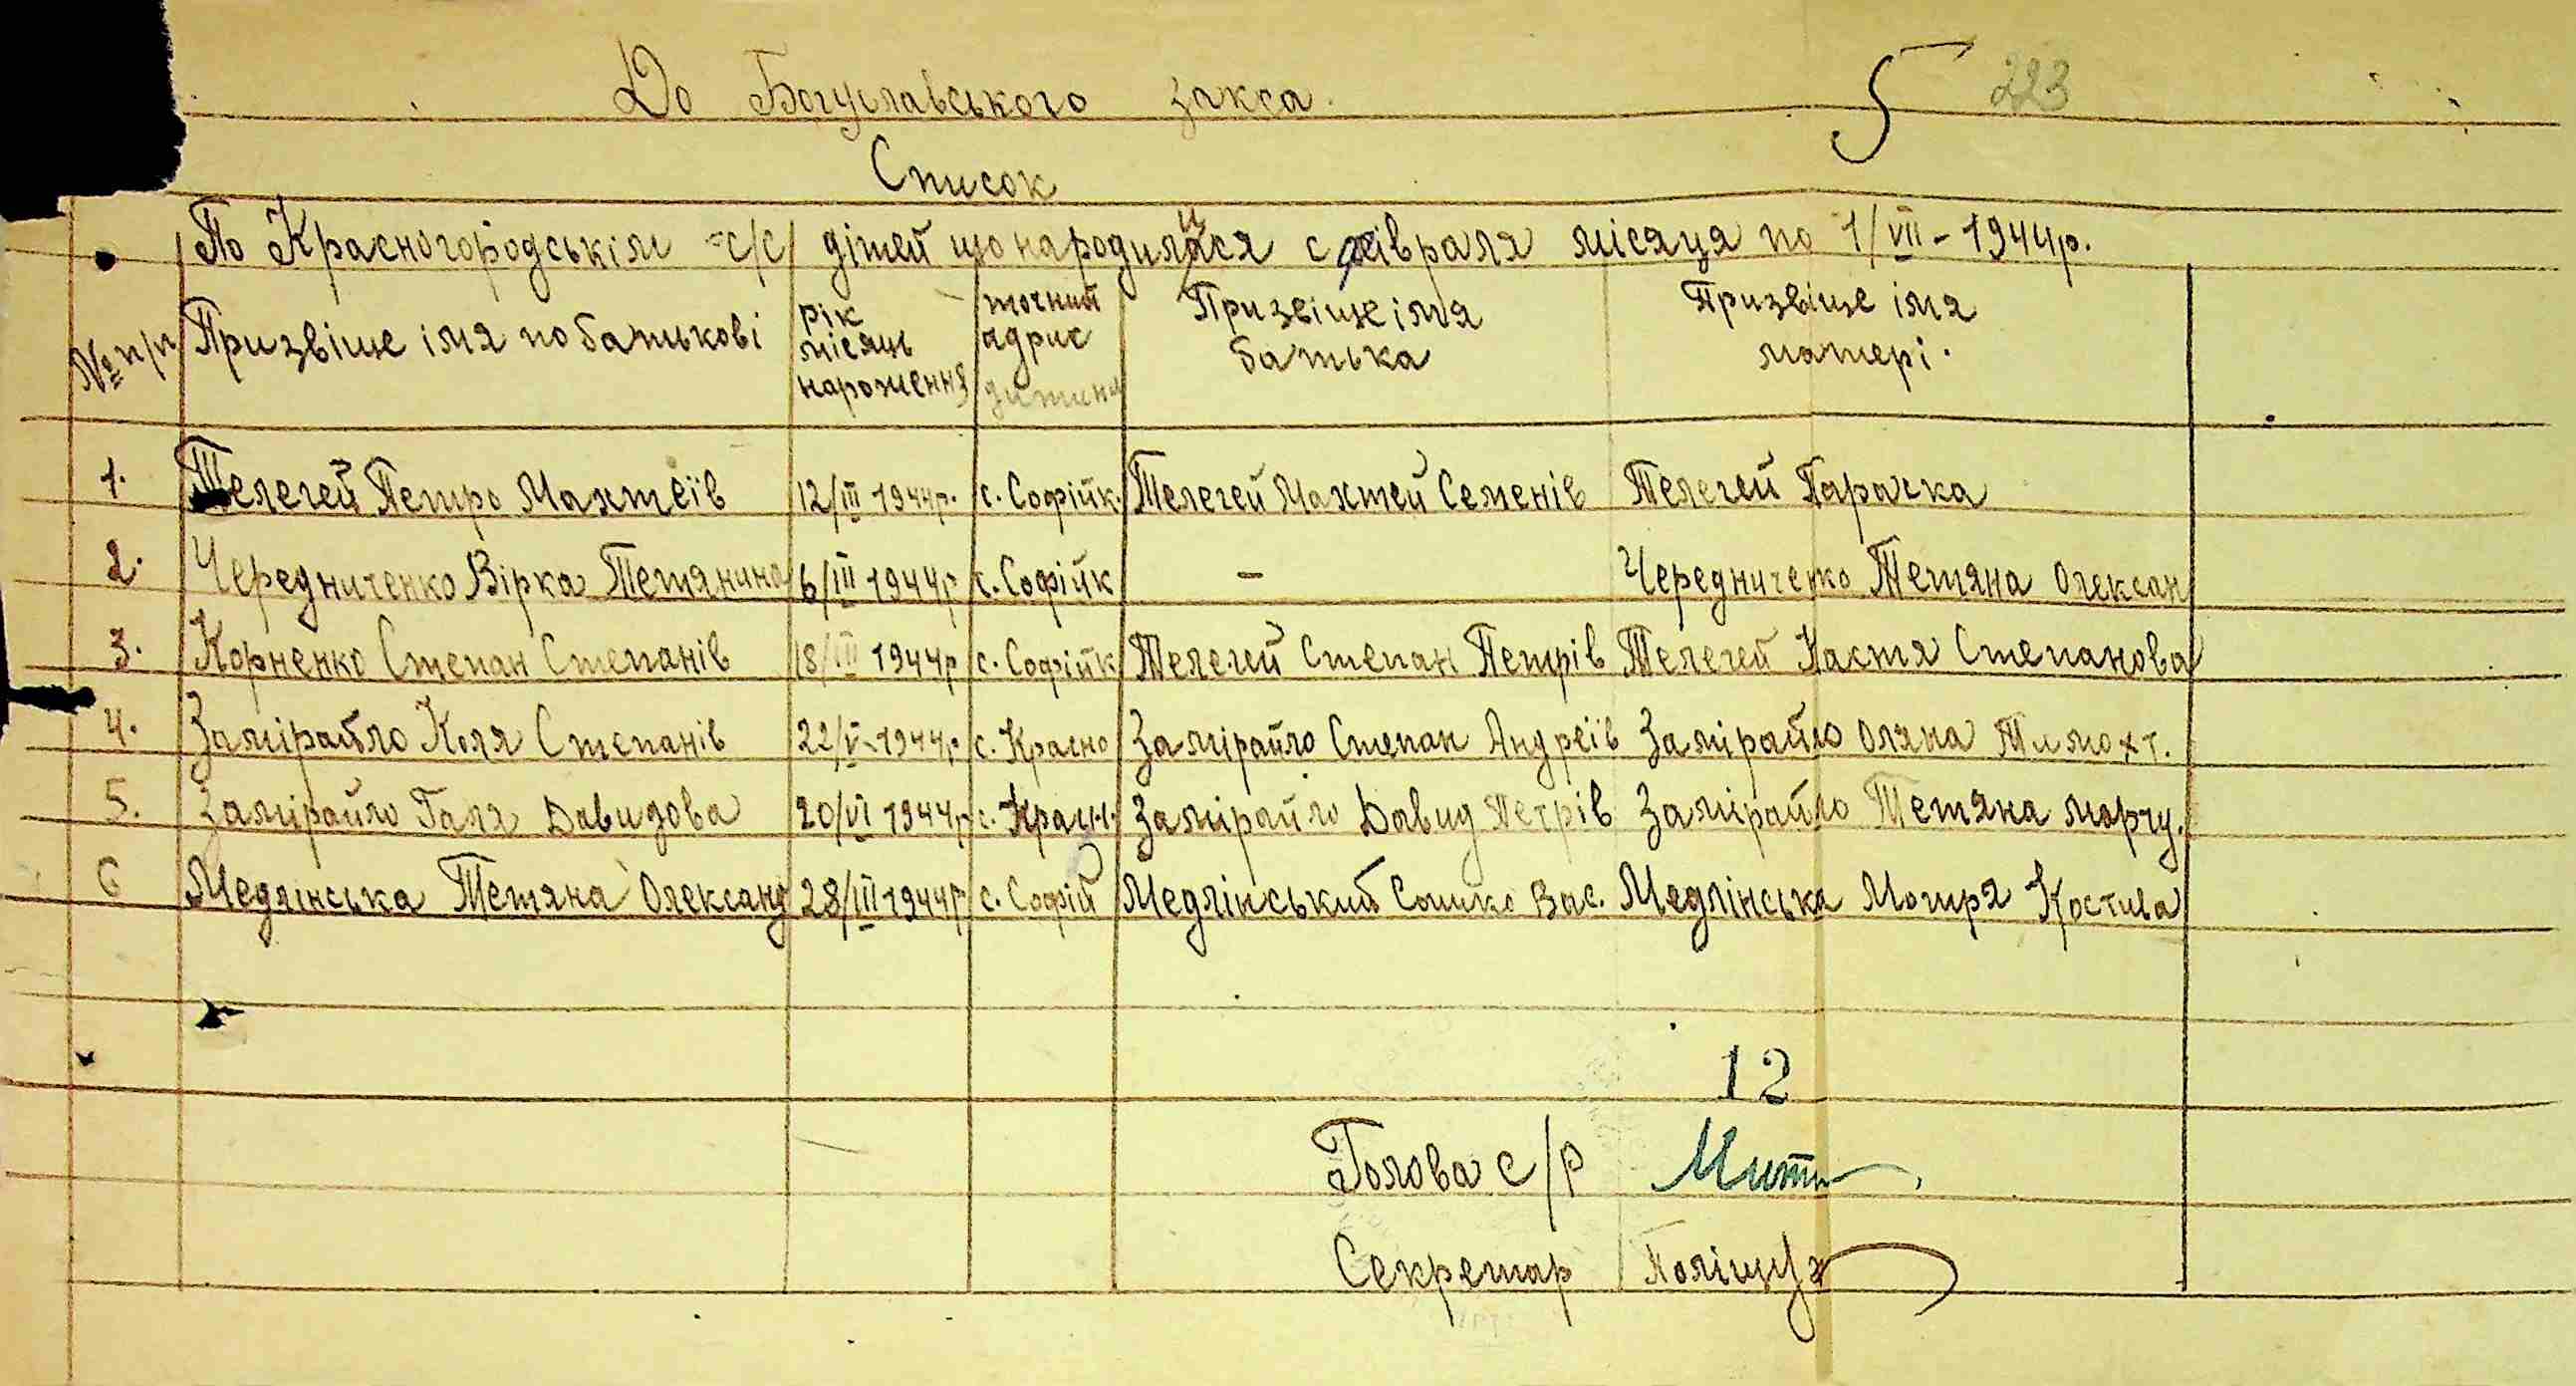 До Богуславського загса. 5 223
Список
По Красногородськім с/с дітей що народилися с февраля місяця по 1/VII - 1944р.
№ п/п Призвіще імя по батькові рік місяць нароження точний адрис дитини Призвіще імя батька Призвіще імя матері.
1. Телегей Петро Махтеїв 12/III 1944р. с. Софійк. Телегей Махтей Семенів Телегей Параска
2. Чередниченко Вірка Тетянина 6/III 1944р с. Софійк - Чередниченко Тетяна Олександ
3. Корненко Степан Степанів 18/III 1944р с. Софійк Телегей Степан Петрів Телегей Настя Степанова
4. Замірайло Коля Степанів 22/V-1944р с. Красно Замірайло Степан Андреїв Замірайло Оляна Тимохт.
5. Замірайло Галя Давидова 20/VI 1944р с. Замірайло Давид Петрів Замірайло Тетяна
6 Медлінська Тетяна Олександ 28/III 1944р с. Софій Медлінський Сашко Вас. Медлінська Мотря Костива
12
Голова с/р
Секретар Поліщук